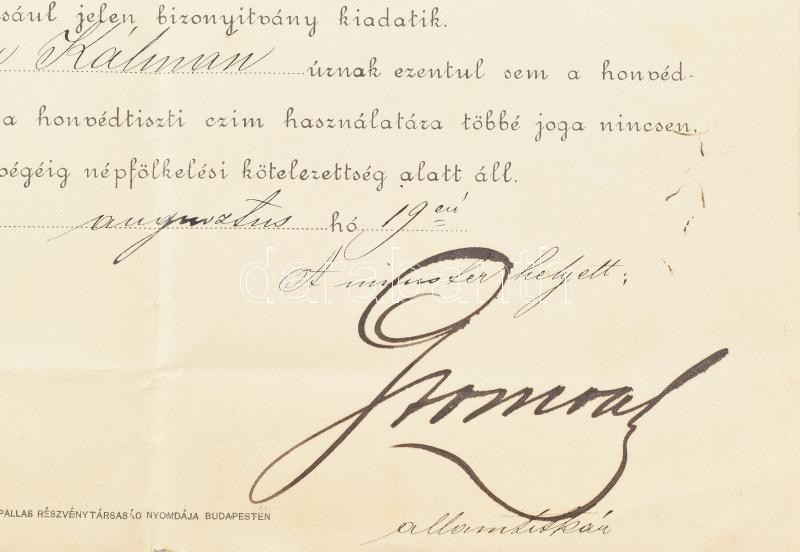 sául jelen bizonyitvány kiadatik.
Kálmán úrnak ezentul sem a honvéd-
a honvédtiszti czim használatára többé joga nincsen,
végéig népfölkelési kötelezettség alatt áll.
augusztus hó 19 én
A minister helyett:
államtitkár
PALLAS RÉSZVÉNYTÁRSASÁG NYOMDÁJA BUDAPESTEN
darabanth